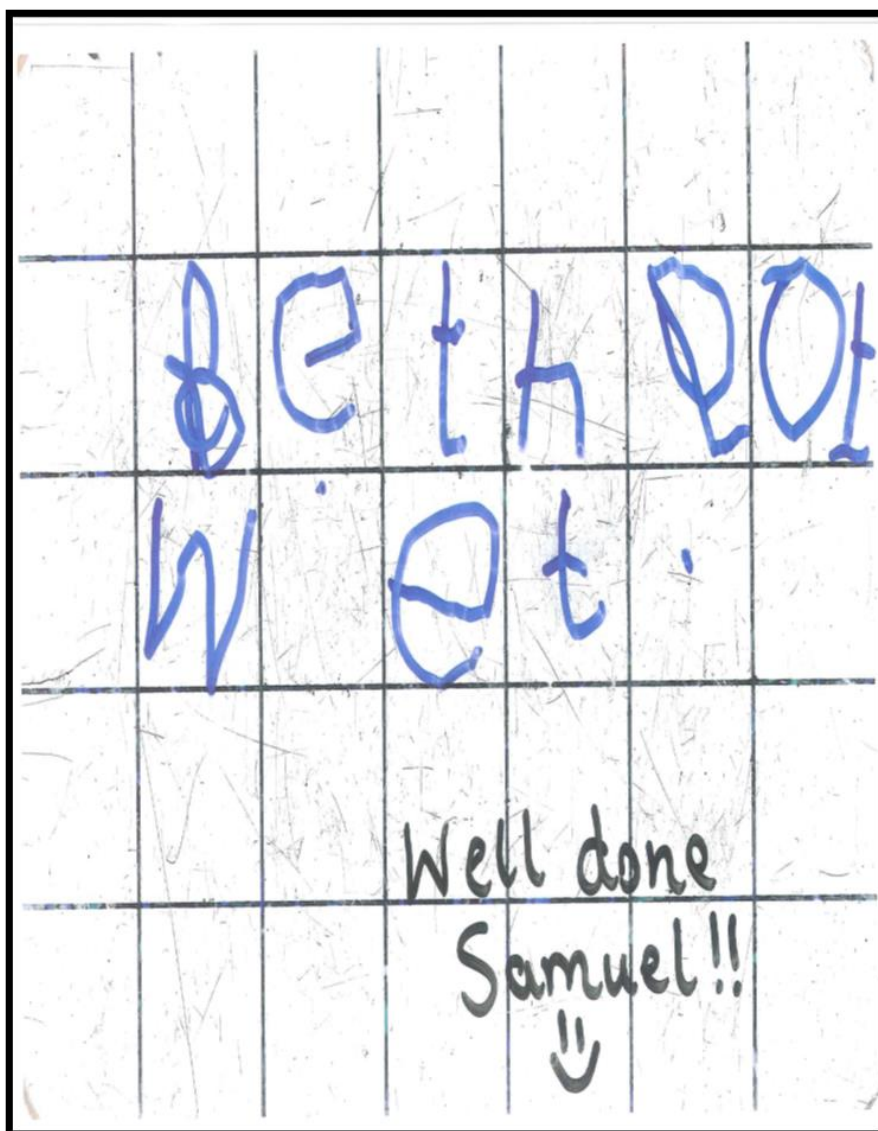 Beth got
wet.
Well done
Samuel!!